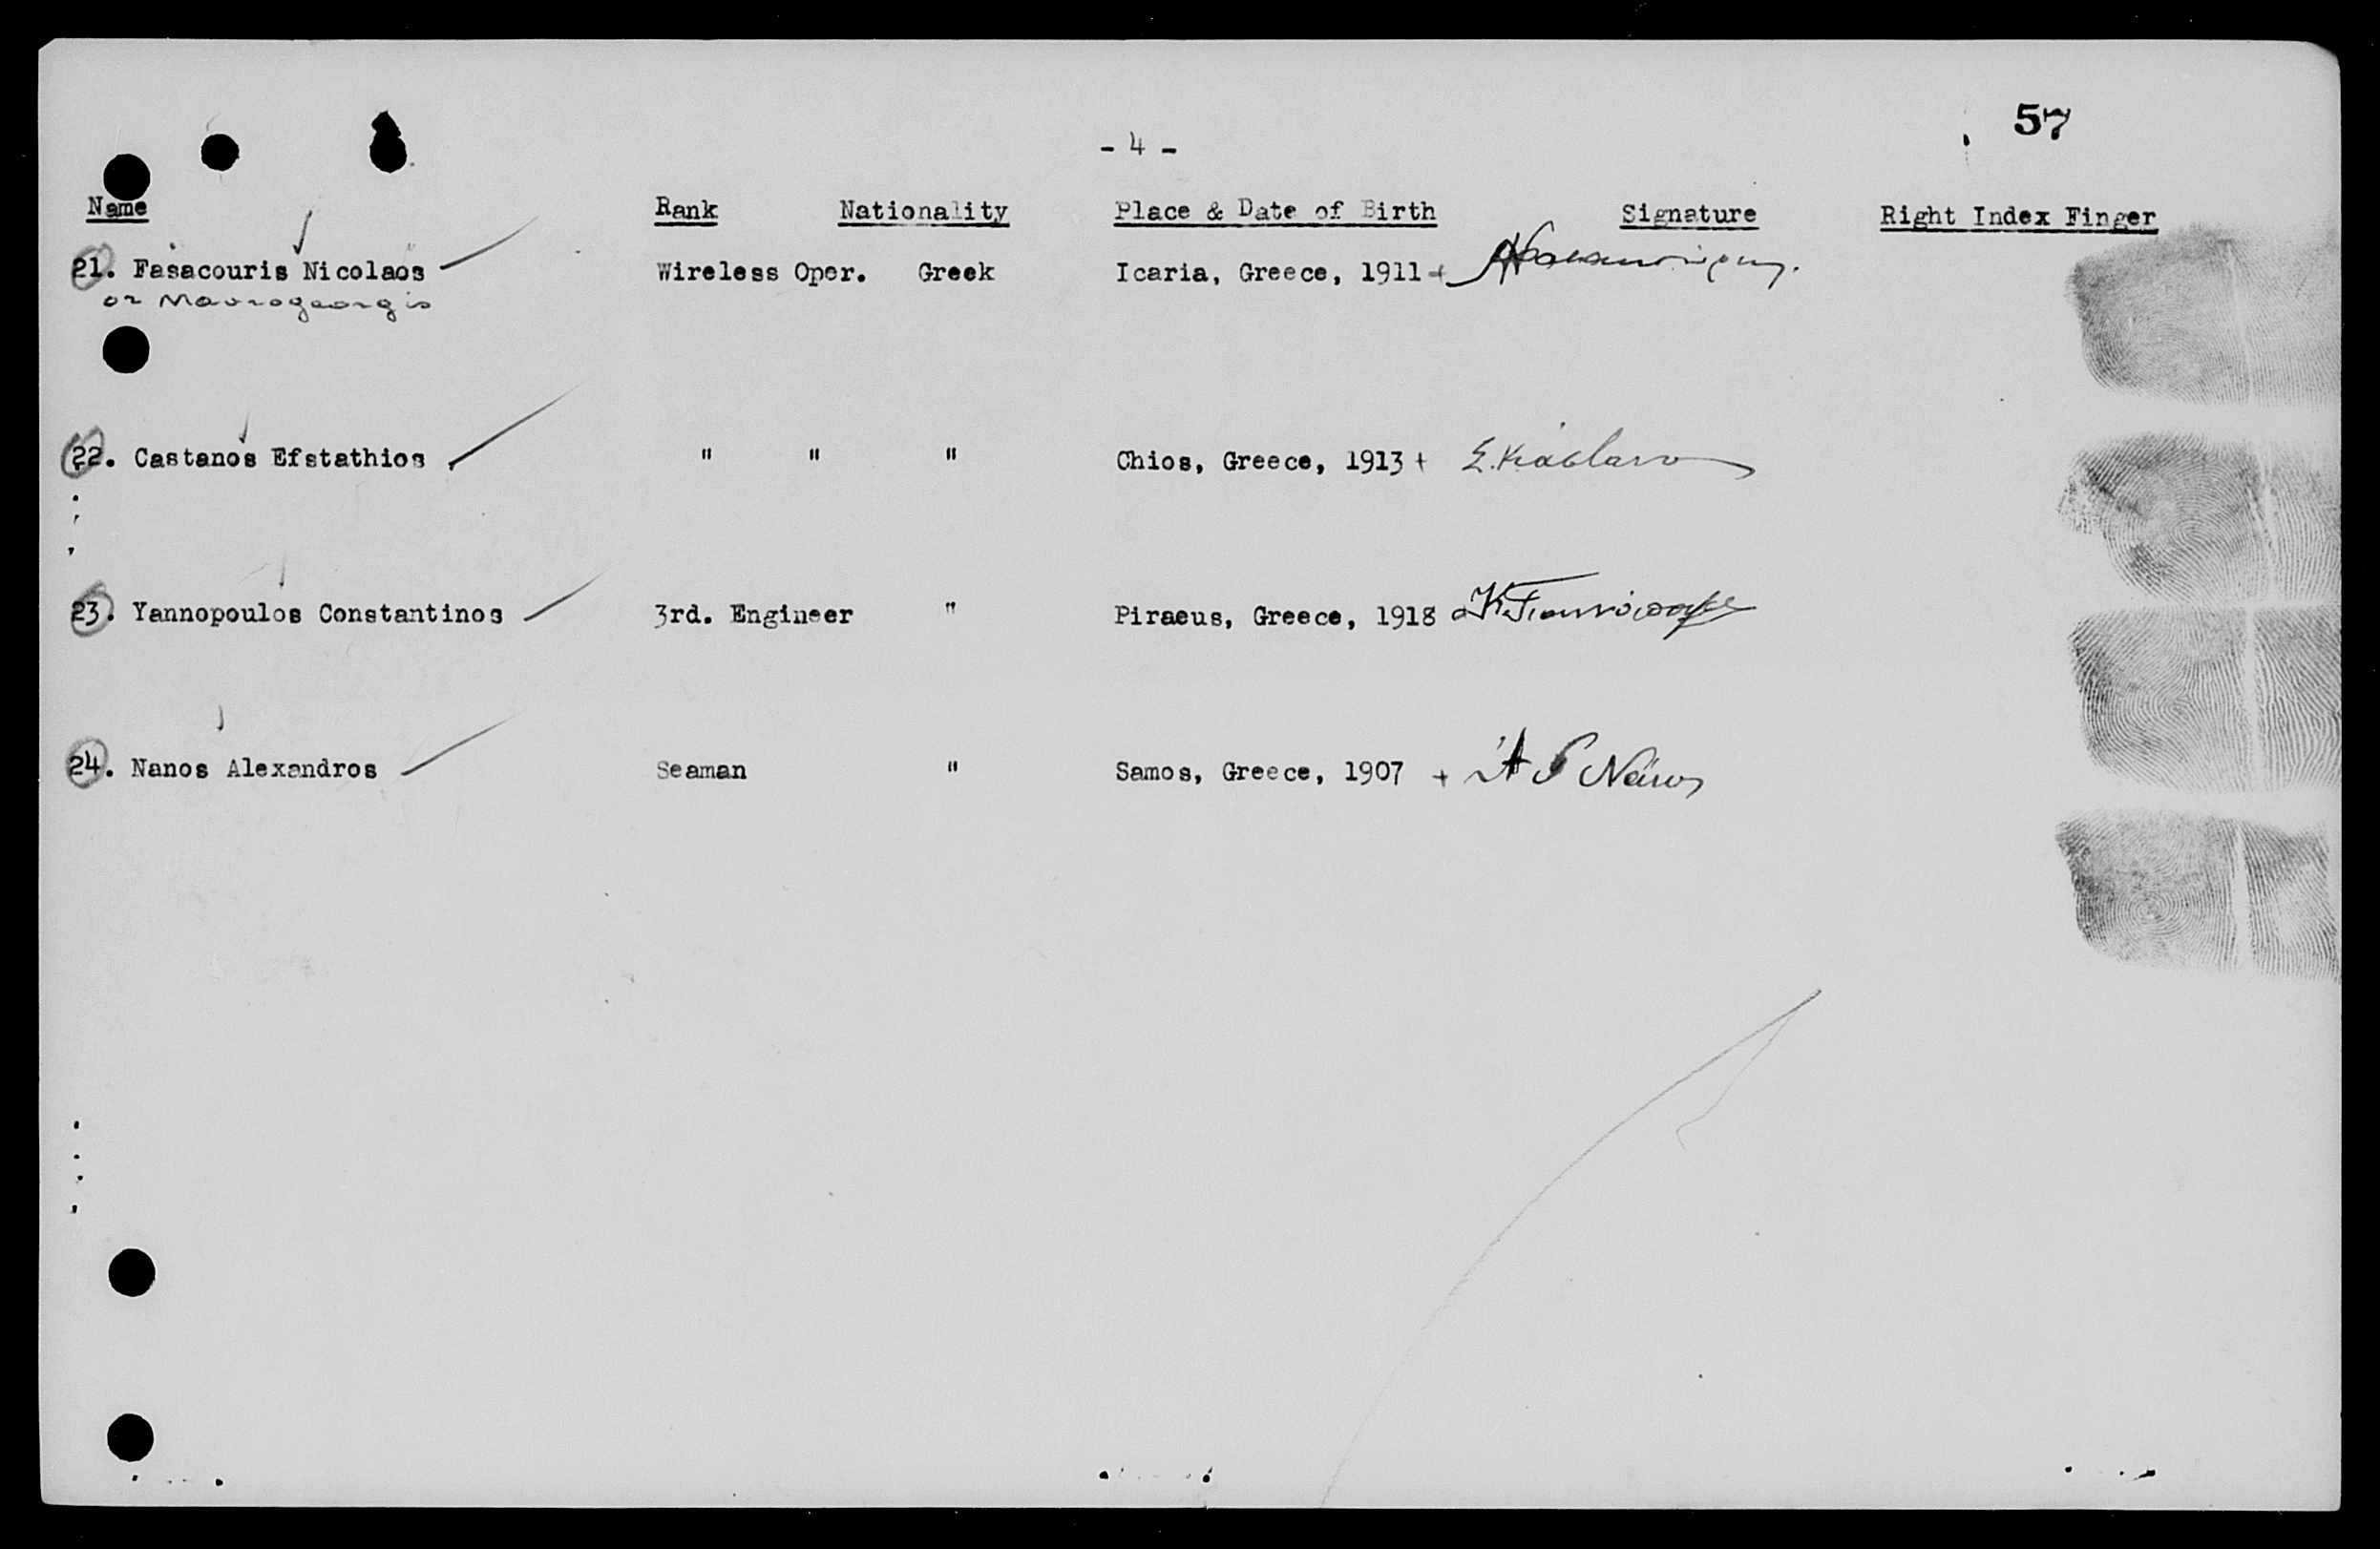 57
- 4 -
Name Rank Nationality Place & Date of Birth Signature Right Index Finger
21. Fasacouris Nicolaos Wireless Oper. Greek Icaria, Greece, 1911 +
or Mavrogeorgis
22. Castanos Efstathios " " " Chios, Greece, 1913 + Σ. Κάσταν
23. Yannopoulos Constantinos 3rd. Engineer " Piraeus, Greece, 1918 Κ. Γιαννόπουλος
24. Nanos Alexandros Seaman " Samos, Greece, 1907 + Νάνος